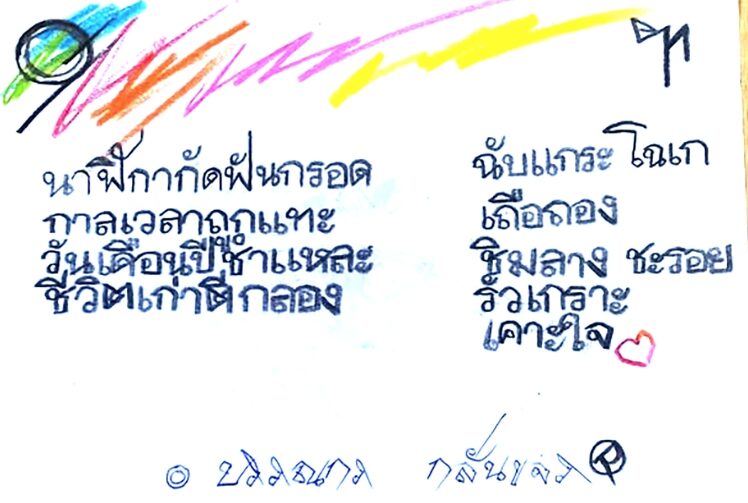 นาฬิกากัดฟันกรอด
กาลเวลาถูกแทะ
วันเดือนปีชำแหละ
ชีวิตเก่าตีกลอง
ฉับแกระ โฉเก
เถือถอง
ชิมลาง ชะรอย
รัวเกราะ
เคาะใจ